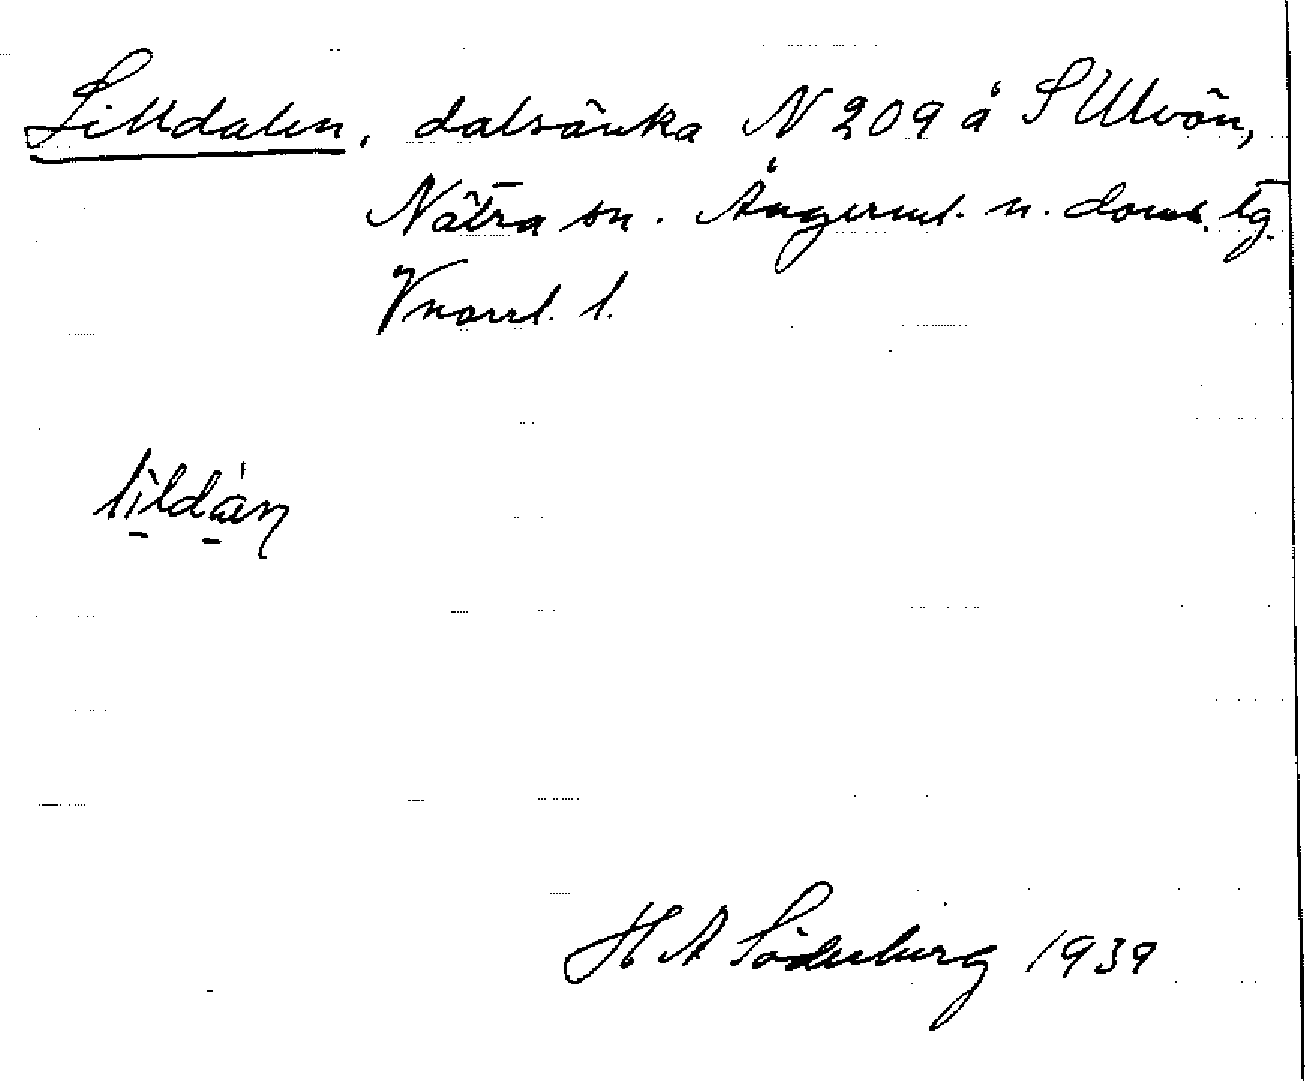 Lilldalen, dalsänka N 209 å S Ulvön,
Nätra sn. Ångerml. n. doms. tg.
Vnorrl. l.
lìldán
H A Söderberg 1939